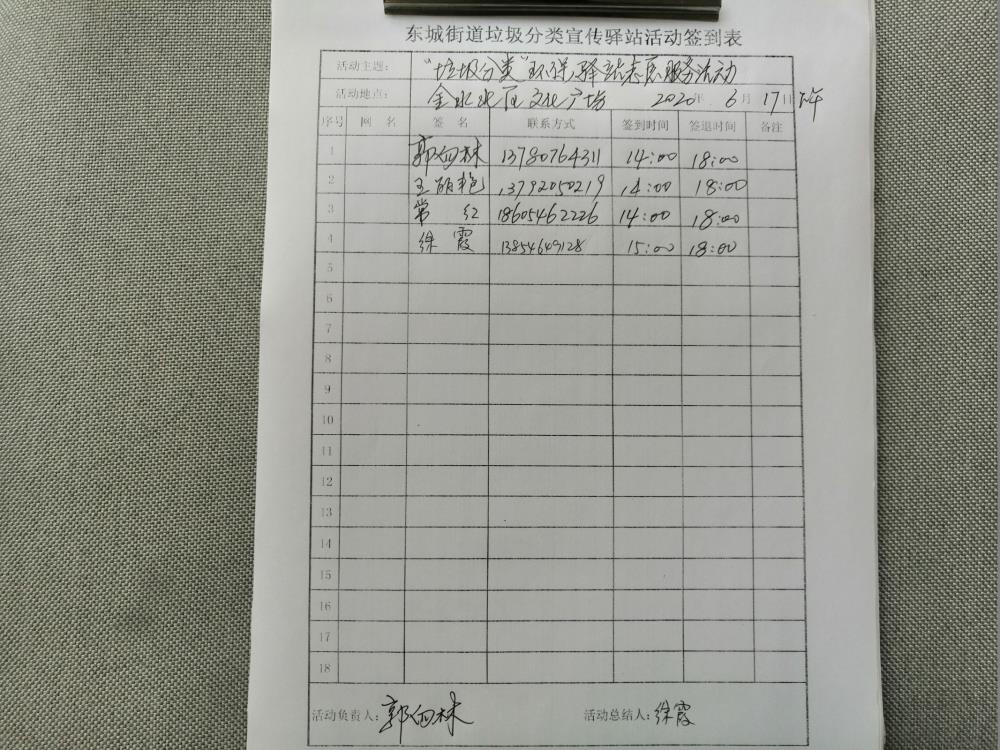 东城街道垃圾分类宣传驿站活动签到表
活动主题: "垃圾分类"环保驿站志愿服务活动
活动地点: 金水北区文化广场 2020年 6月 17日下午
序号 网 名 签 名 联系方式 签到时间 签退时间 备注
1 郭向林 13780764311 14:00 18:00
2 王丽艳 13792050219 14:00 18:00
3 常 红 18605462226 14:00 18:00
4 徐 霞 13854649128 15:00 18:00
5
6
7
8
9
10
11
12
13
14
15
16
17
18
活动负责人: 郭向林 活动总结人: 徐霞